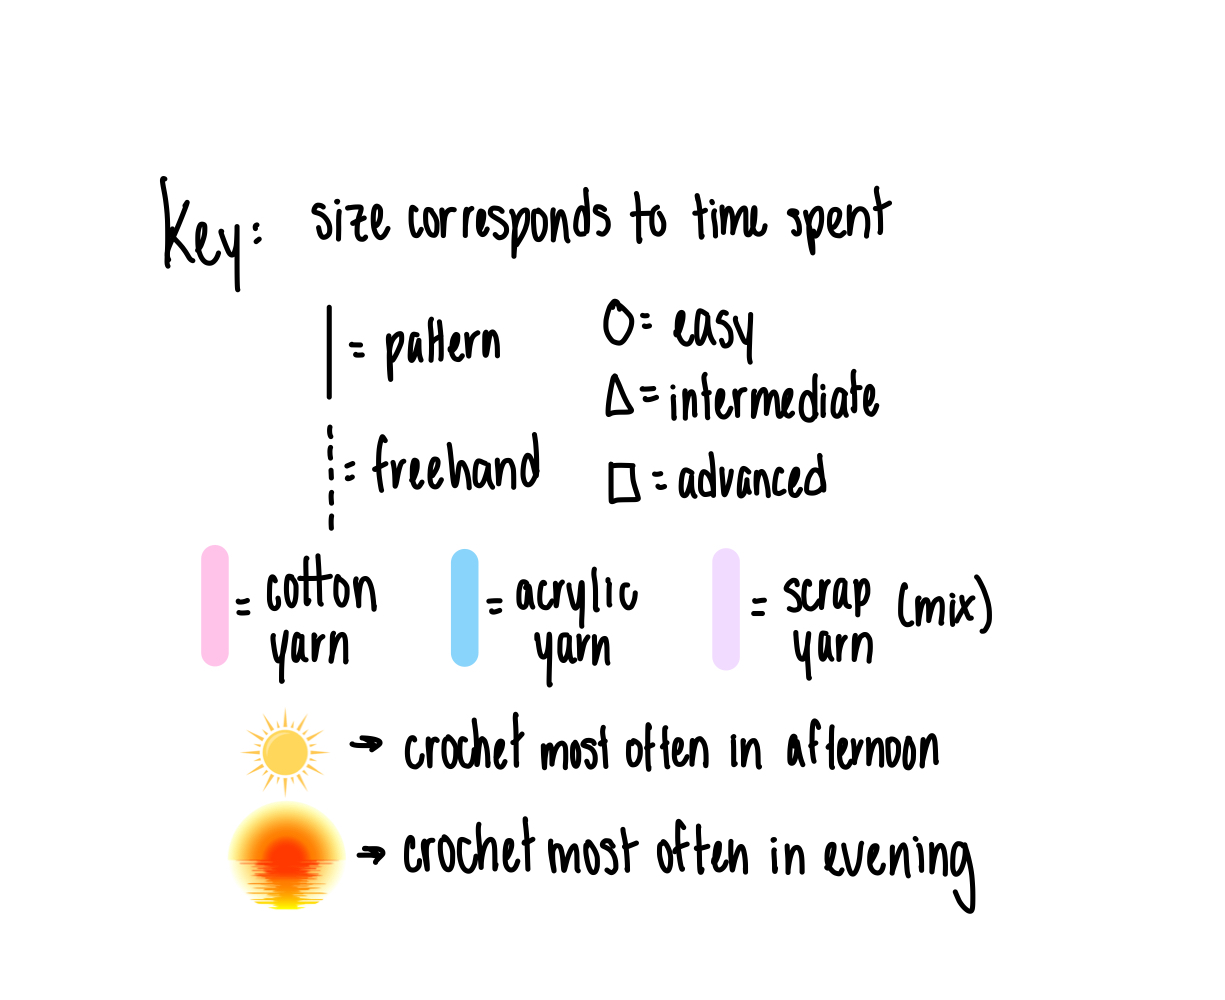 Key: size corresponds to time spent
| = pattern
O = easy
Δ = intermediate
¦ = freehand
□ = advanced
= cotton yarn
= acrylic yarn
= scrap yarn (mix)
→ crochet most often in afternoon
→ crochet most often in evening